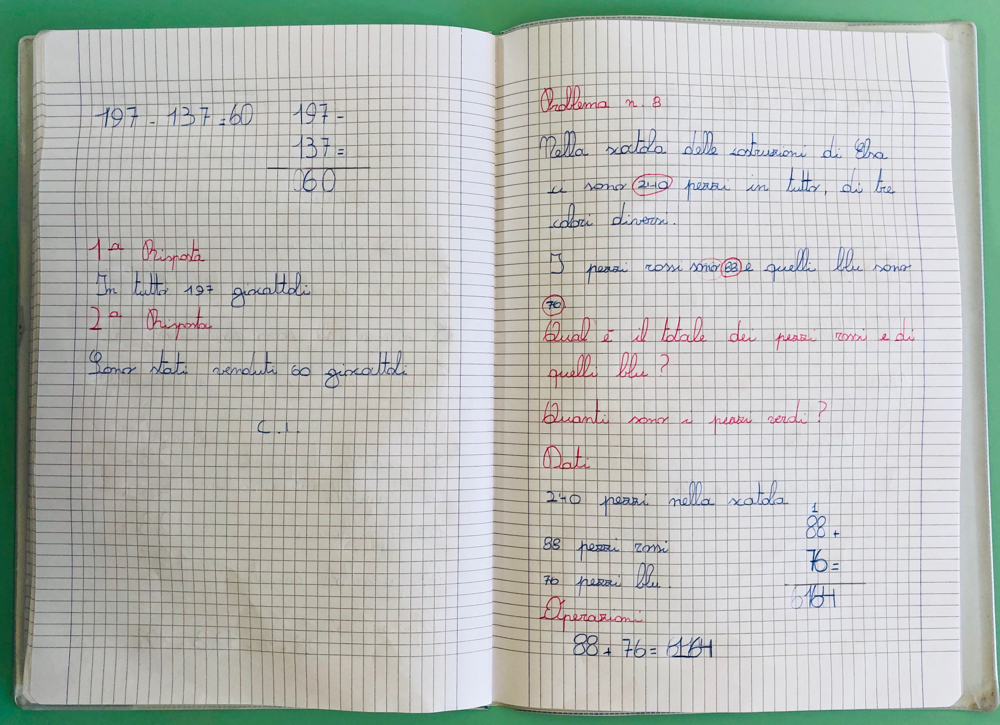 197 - 137 = 60
197 -
137 =
060
1ª Risposta
In tutto 197 giocattoli
2ª Risposta
Sono stati venduti 60 giocattoli
C. I.
Problema n. 8
Nella scatola delle costruzioni di Elsa
ci sono 240 pezzi in tutto, di tre
colori diversi.
I pezzi rossi sono 88 e quelli blu sono
76
Qual è il totale dei pezzi rossi e di
quelli blu?
Quanti sono i pezzi verdi?
Dati
240 pezzi nella scatola
88 pezzi rossi
76 pezzi blu.
1
88 +
76 =
164
Operazioni
88 + 76 = 164